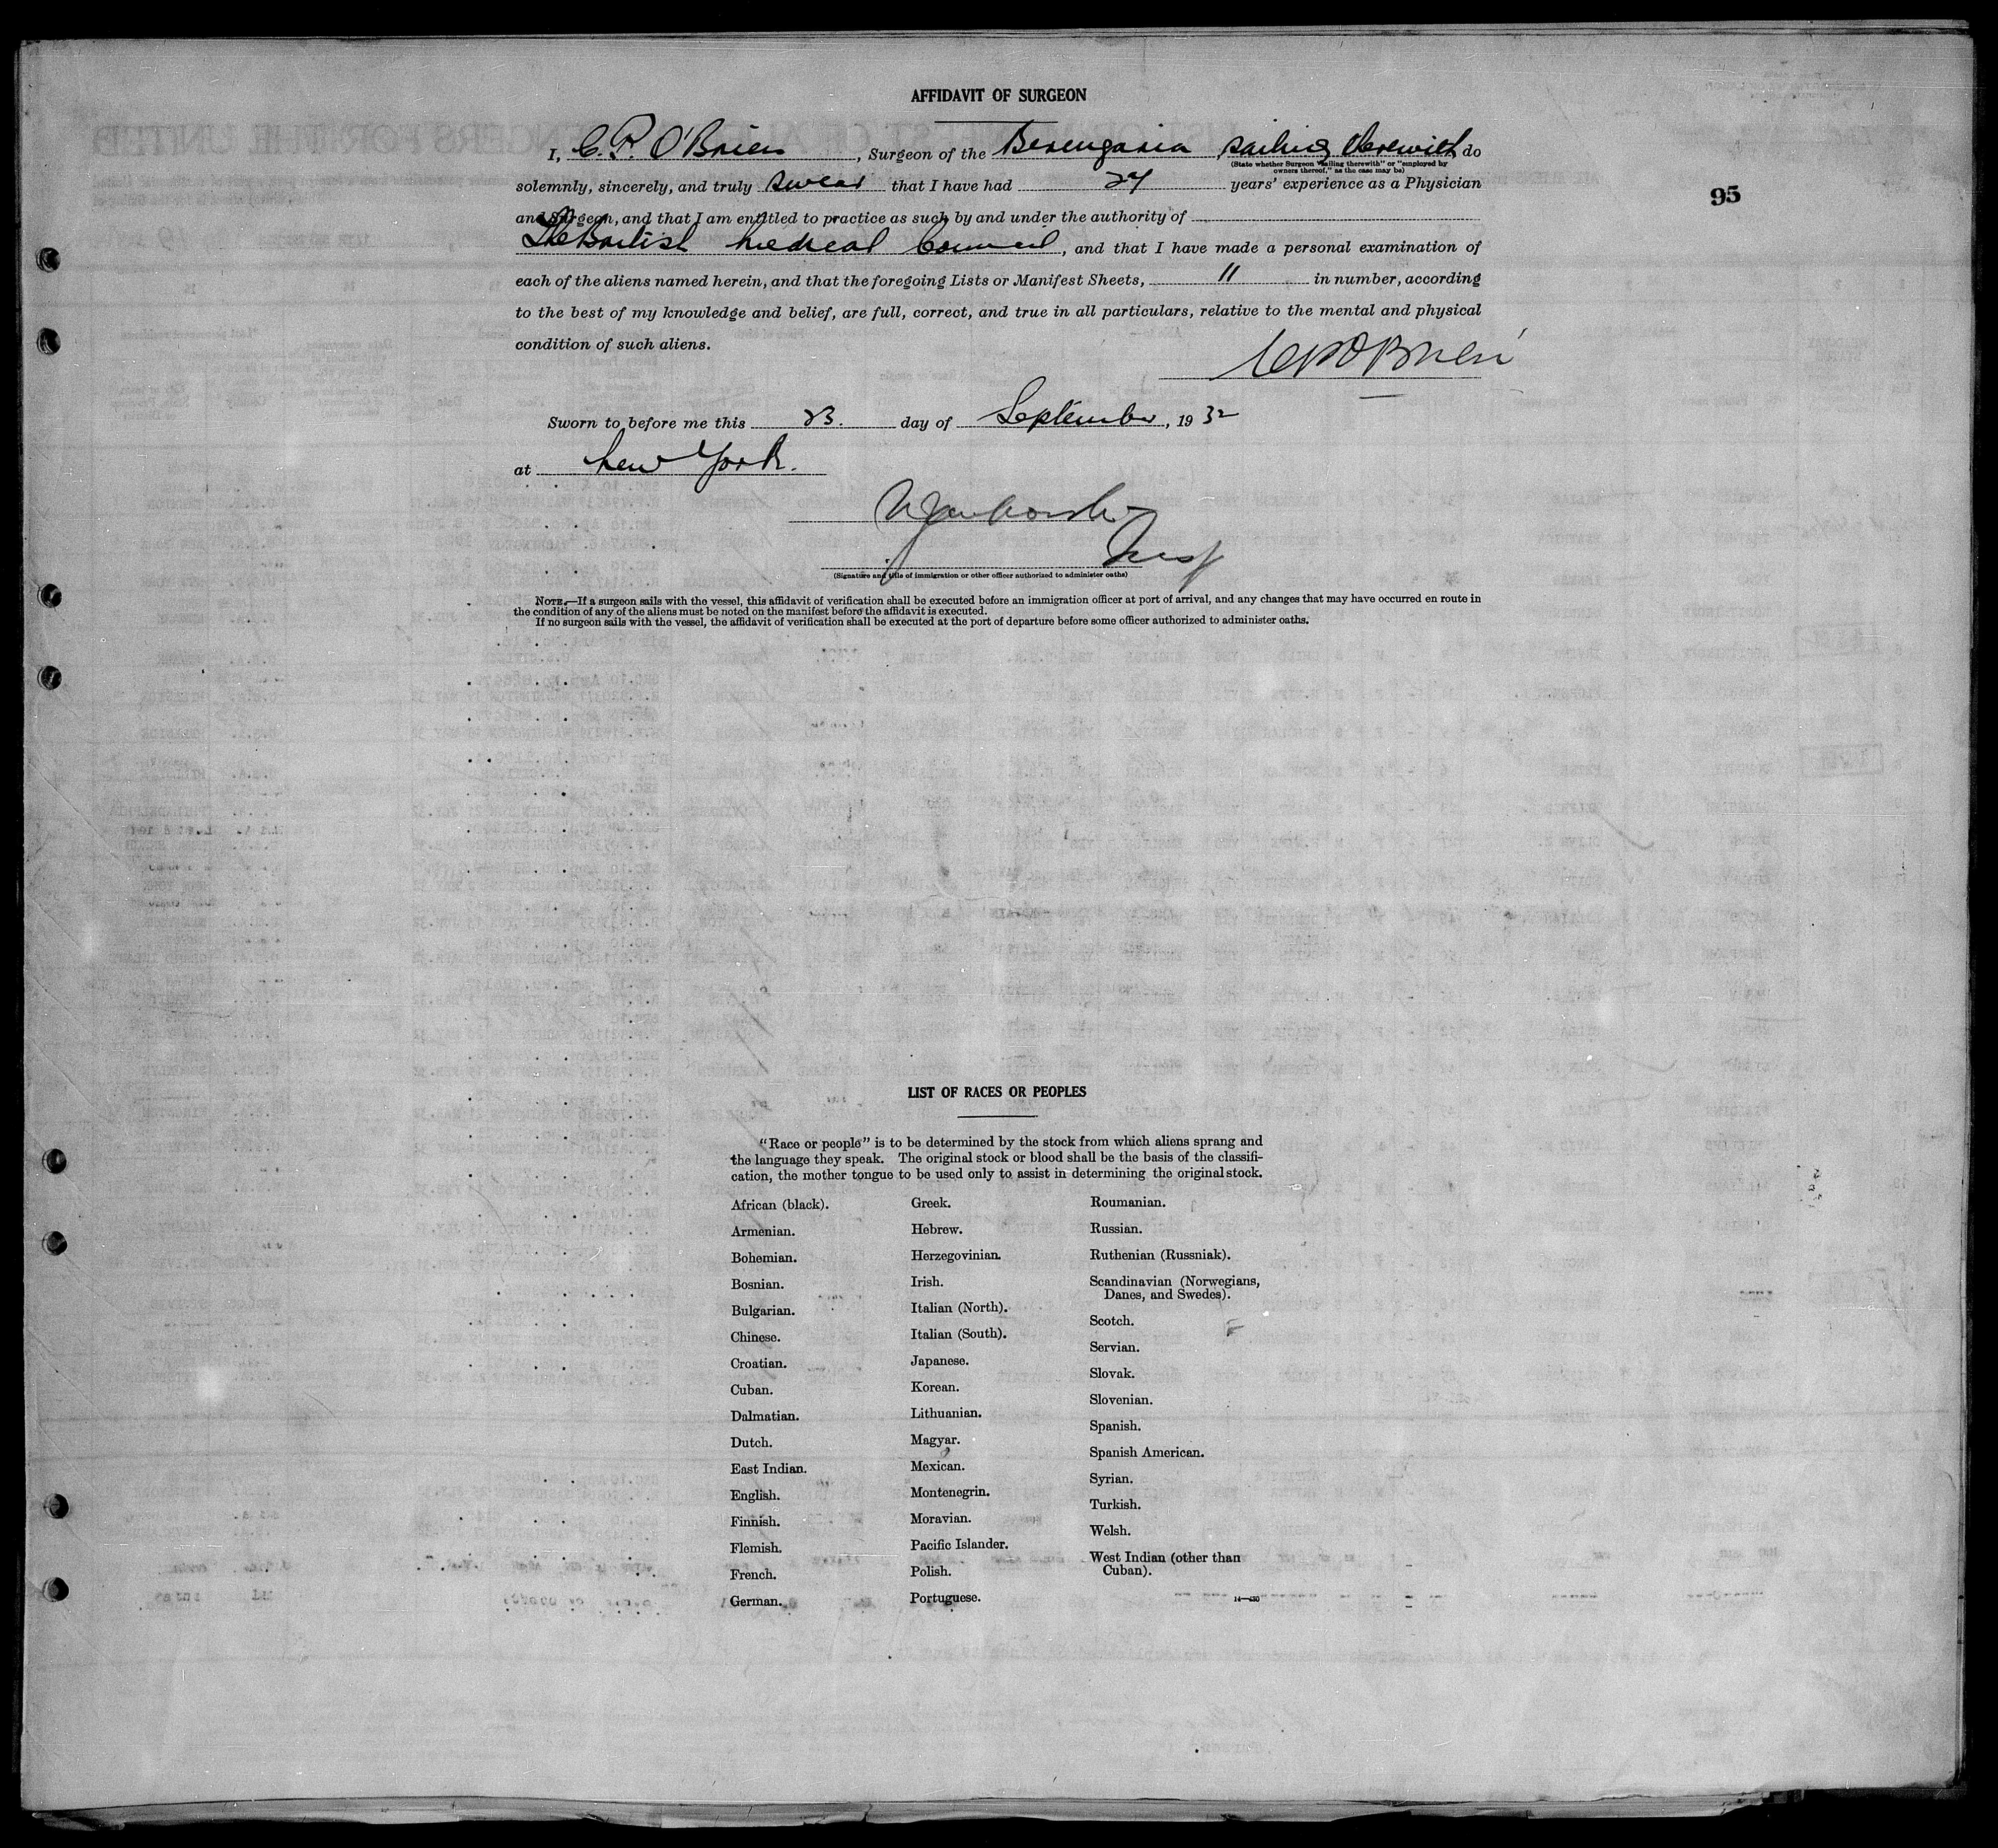 AFFIDAVIT OF SURGEON
I, C. P. O'Brien, Surgeon of the Berengaria sailing therewith do
(State whether Surgeon "sailing therewith" or "employed by
owners thereof," as the case may be)
solemnly, sincerely, and truly swear that I have had 24 years' experience as a Physician
95
and Surgeon, and that I am entitled to practice as such by and under the authority of
The British medical Council, and that I have made a personal examination of
each of the aliens named herein, and that the foregoing Lists or Manifest Sheets, 11 in number, according
to the best of my knowledge and belief, are full, correct, and true in all particulars, relative to the mental and physical
condition of such aliens.
CPO'Brien
Sworn to before me this 23. day of September, 1932
at New York.
Insp
(Signature and title of immigration or other officer authorized to administer oaths)
NOTE.—If a surgeon sails with the vessel, this affidavit of verification shall be executed before an immigration officer at port of arrival, and any changes that may have occurred en route in
the condition of any of the aliens must be noted on the manifest before the affidavit is executed.
If no surgeon sails with the vessel, the affidavit of verification shall be executed at the port of departure before some officer authorized to administer oaths.
LIST OF RACES OR PEOPLES
"Race or people" is to be determined by the stock from which aliens sprang and
the language they speak. The original stock or blood shall be the basis of the classifi-
cation, the mother tongue to be used only to assist in determining the original stock.
African (black).
Armenian.
Bohemian.
Bosnian.
Bulgarian.
Chinese.
Croatian.
Cuban.
Dalmatian.
Dutch.
East Indian.
English.
Finnish.
Flemish.
French.
German.
Greek.
Hebrew.
Herzegovinian.
Irish.
Italian (North).
Italian (South).
Japanese.
Korean.
Lithuanian.
Magyar.
Mexican.
Montenegrin.
Moravian.
Pacific Islander.
Polish.
Portuguese.
Roumanian.
Russian.
Ruthenian (Russniak).
Scandinavian (Norwegians,
Danes, and Swedes).
Scotch.
Servian.
Slovak.
Slovenian.
Spanish.
Spanish American.
Syrian.
Turkish.
Welsh.
West Indian (other than
Cuban).